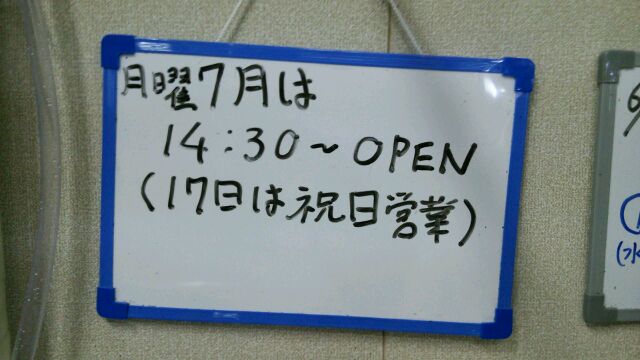 月曜7月は
14:30〜OPEN
(17日は祝日営業)
6/
(水